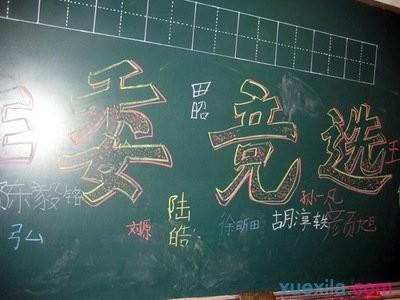 田昭
委竞选
陈毅铭
弘
刘原
陆皓
徐昕田
胡淳轶
孙一凡
王
xuexila.com